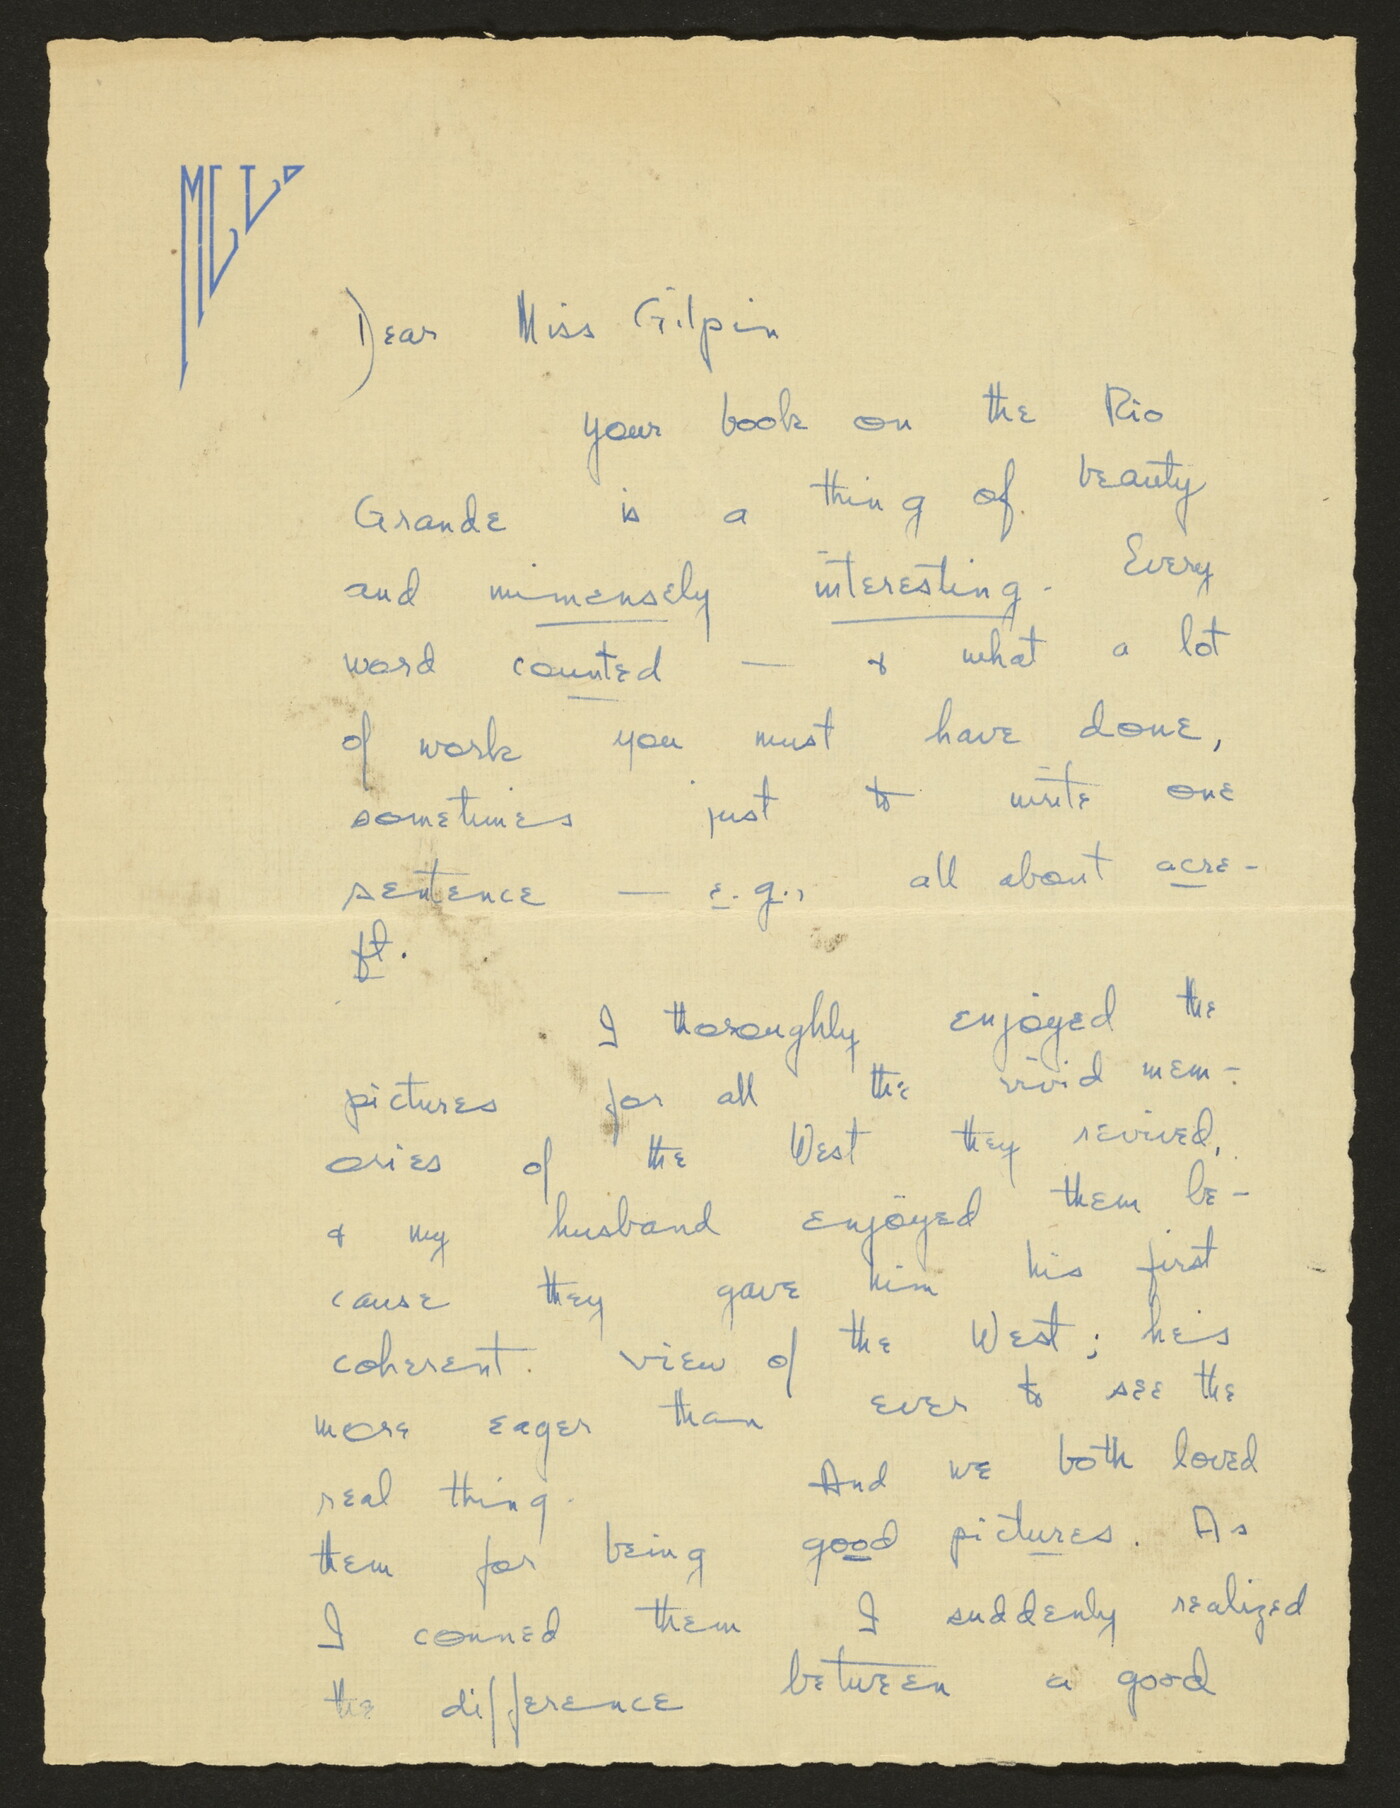 MCL
Dear Miss Gilpin
your book on the Rio
Grande is a thing of beauty
and immensely interesting. Every
word counted — & what a lot
of work you must have done,
sometimes just to write one
sentence — e.g., all about acre-
ft.
I thoroughly enjoyed the
pictures for all the vivid mem-
ories of the West they revived,
& my husband enjoyed them be-
cause they gave him his first
coherent view of the West; he's
more eager than ever to see the
real thing. And we both loved
them for being good pictures. As
I conned them I suddenly realized
the difference between a good